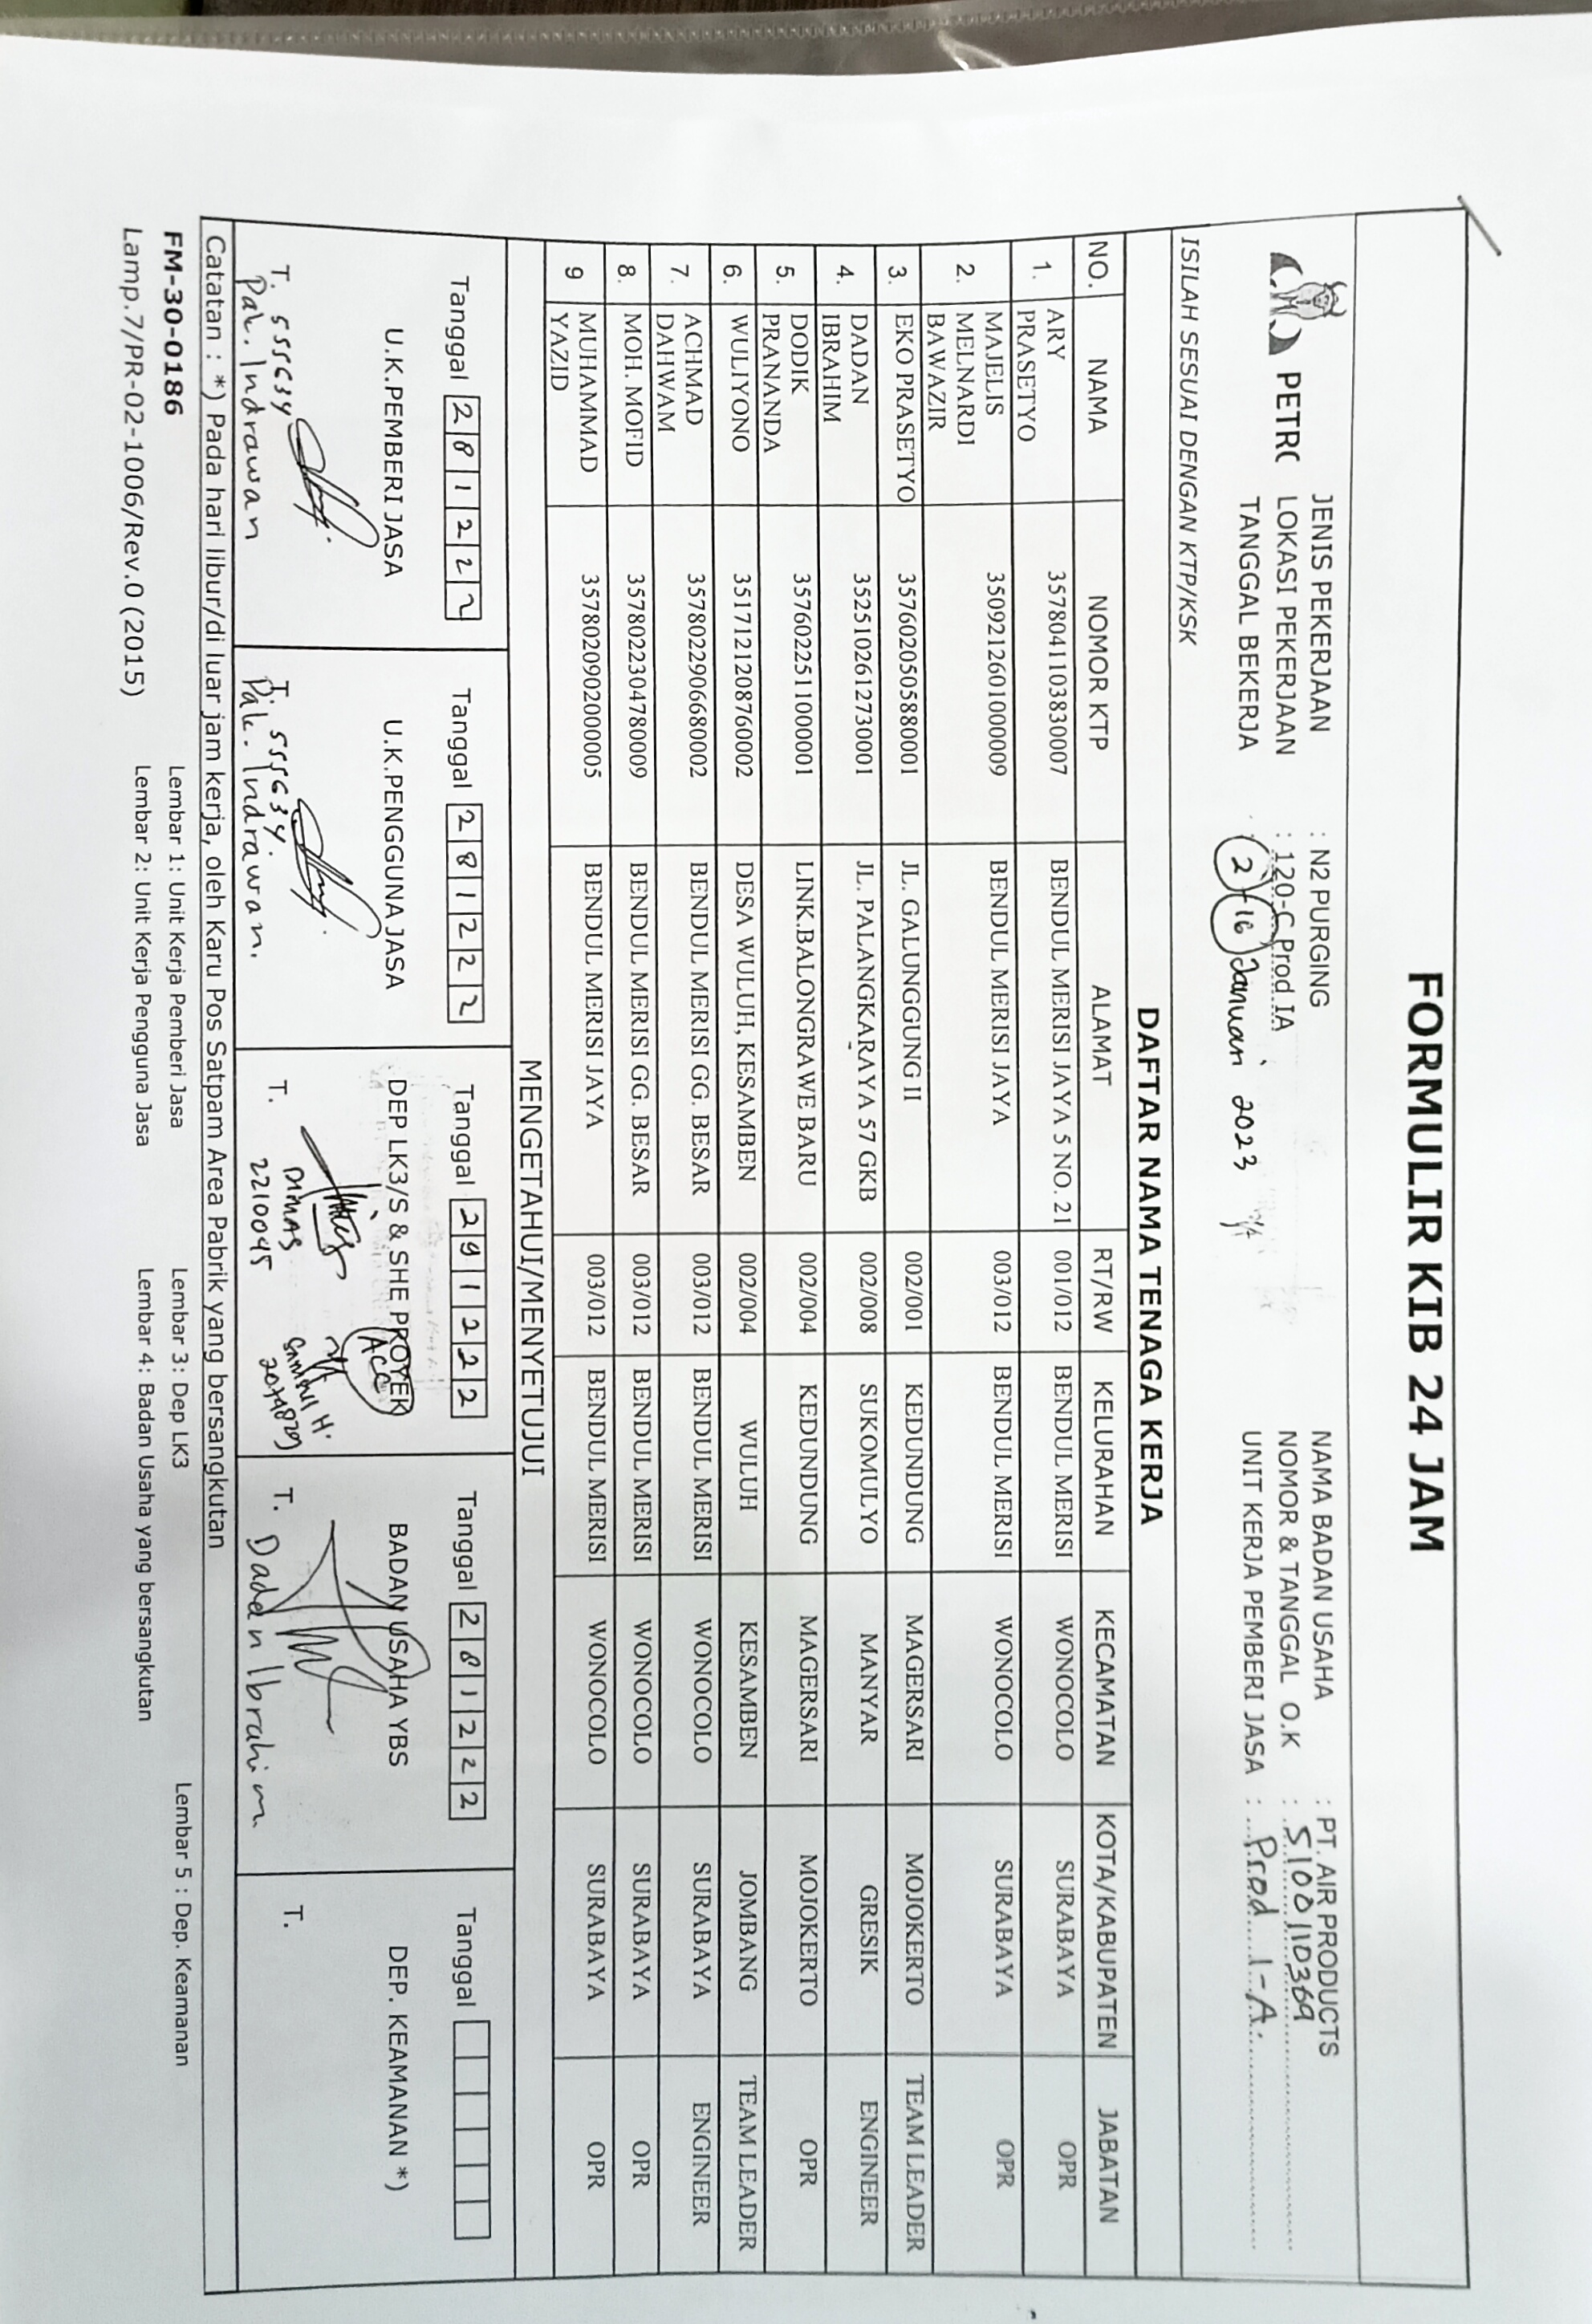 FORMULIR KIB 24 JAM
PETRO
JENIS PEKERJAAN : N2 PURGING
LOKASI PEKERJAAN : 120-C Prod IA
TANGGAL BEKERJA : 2 - 16 Januari 2023
NAMA BADAN USAHA : PT. AIR PRODUCTS
NOMOR & TANGGAL O.K : 5100110369
UNIT KERJA PEMBERI JASA : Prod 1-A.
ISILAH SESUAI DENGAN KTP/KSK
DAFTAR NAMA TENAGA KERJA
NO. NAMA NOMOR KTP ALAMAT RT/RW KELURAHAN KECAMATAN KOTA/KABUPATEN JABATAN
1. ARY PRASETYO 3578041103830007 BENDUL MERISI JAYA 5 NO. 21 001/012 BENDUL MERISI WONOCOLO SURABAYA OPR
2. MAJELIS MELNARDI BAWAZIR 3509212601000009 BENDUL MERISI JAYA 003/012 BENDUL MERISI WONOCOLO SURABAYA OPR
3. EKO PRASETYO 3576020505880001 JL. GALUNGGUNG II 002/001 KEDUNDUNG MAGERSARI MOJOKERTO TEAM LEADER
4. DADAN IBRAHIM 3525102612730001 JL. PALANGKARAYA 57 GKB 002/008 SUKOMULYO MANYAR GRESIK ENGINEER
5. DODIK PRANANDA 3576022511000001 LINK.BALONGRAWE BARU 002/004 KEDUNDUNG MAGERSARI MOJOKERTO OPR
6. WULIYONO 3517121208760002 DESA WULUH, KESAMBEN 002/004 WULUH KESAMBEN JOMBANG TEAM LEADER
7. ACHMAD DAHWAM 3578022906680002 BENDUL MERISI GG. BESAR 003/012 BENDUL MERISI WONOCOLO SURABAYA ENGINEER
8. MOH. MOFID 3578022304780009 BENDUL MERISI GG. BESAR 003/012 BENDUL MERISI WONOCOLO SURABAYA OPR
9 MUHAMMAD YAZID 3578020902000005 BENDUL MERISI JAYA 003/012 BENDUL MERISI WONOCOLO SURABAYA OPR
MENGETAHUI/MENYETUJUI
Tanggal 2 8 1 2 2 2
U.K.PEMBERI JASA
T. 555634
Pak. Indrawan
Tanggal 2 8 1 2 2 2
U.K.PENGGUNA JASA
T. 555634.
Pak. Indrawan.
Tanggal 2 9 1 2 2 2
DEP LK3/S & SHE PROYEK
ACC
T. DIMAS
2210045
Tanggal 2 8 1 2 2 2
BADAN USAHA YBS
T. Dadan Ibrahim
Tanggal
DEP. KEAMANAN *)
T.
Catatan : *) Pada hari libur/di luar jam kerja, oleh Karu Pos Satpam Area Pabrik yang bersangkutan
FM-30-0186
Lamp.7/PR-02-1006/Rev.0 (2015)
Lembar 1: Unit Kerja Pemberi Jasa
Lembar 2: Unit Kerja Pengguna Jasa
Lembar 3: Dep LK3
Lembar 4: Badan Usaha yang bersangkutan
Lembar 5 : Dep. Keamanan